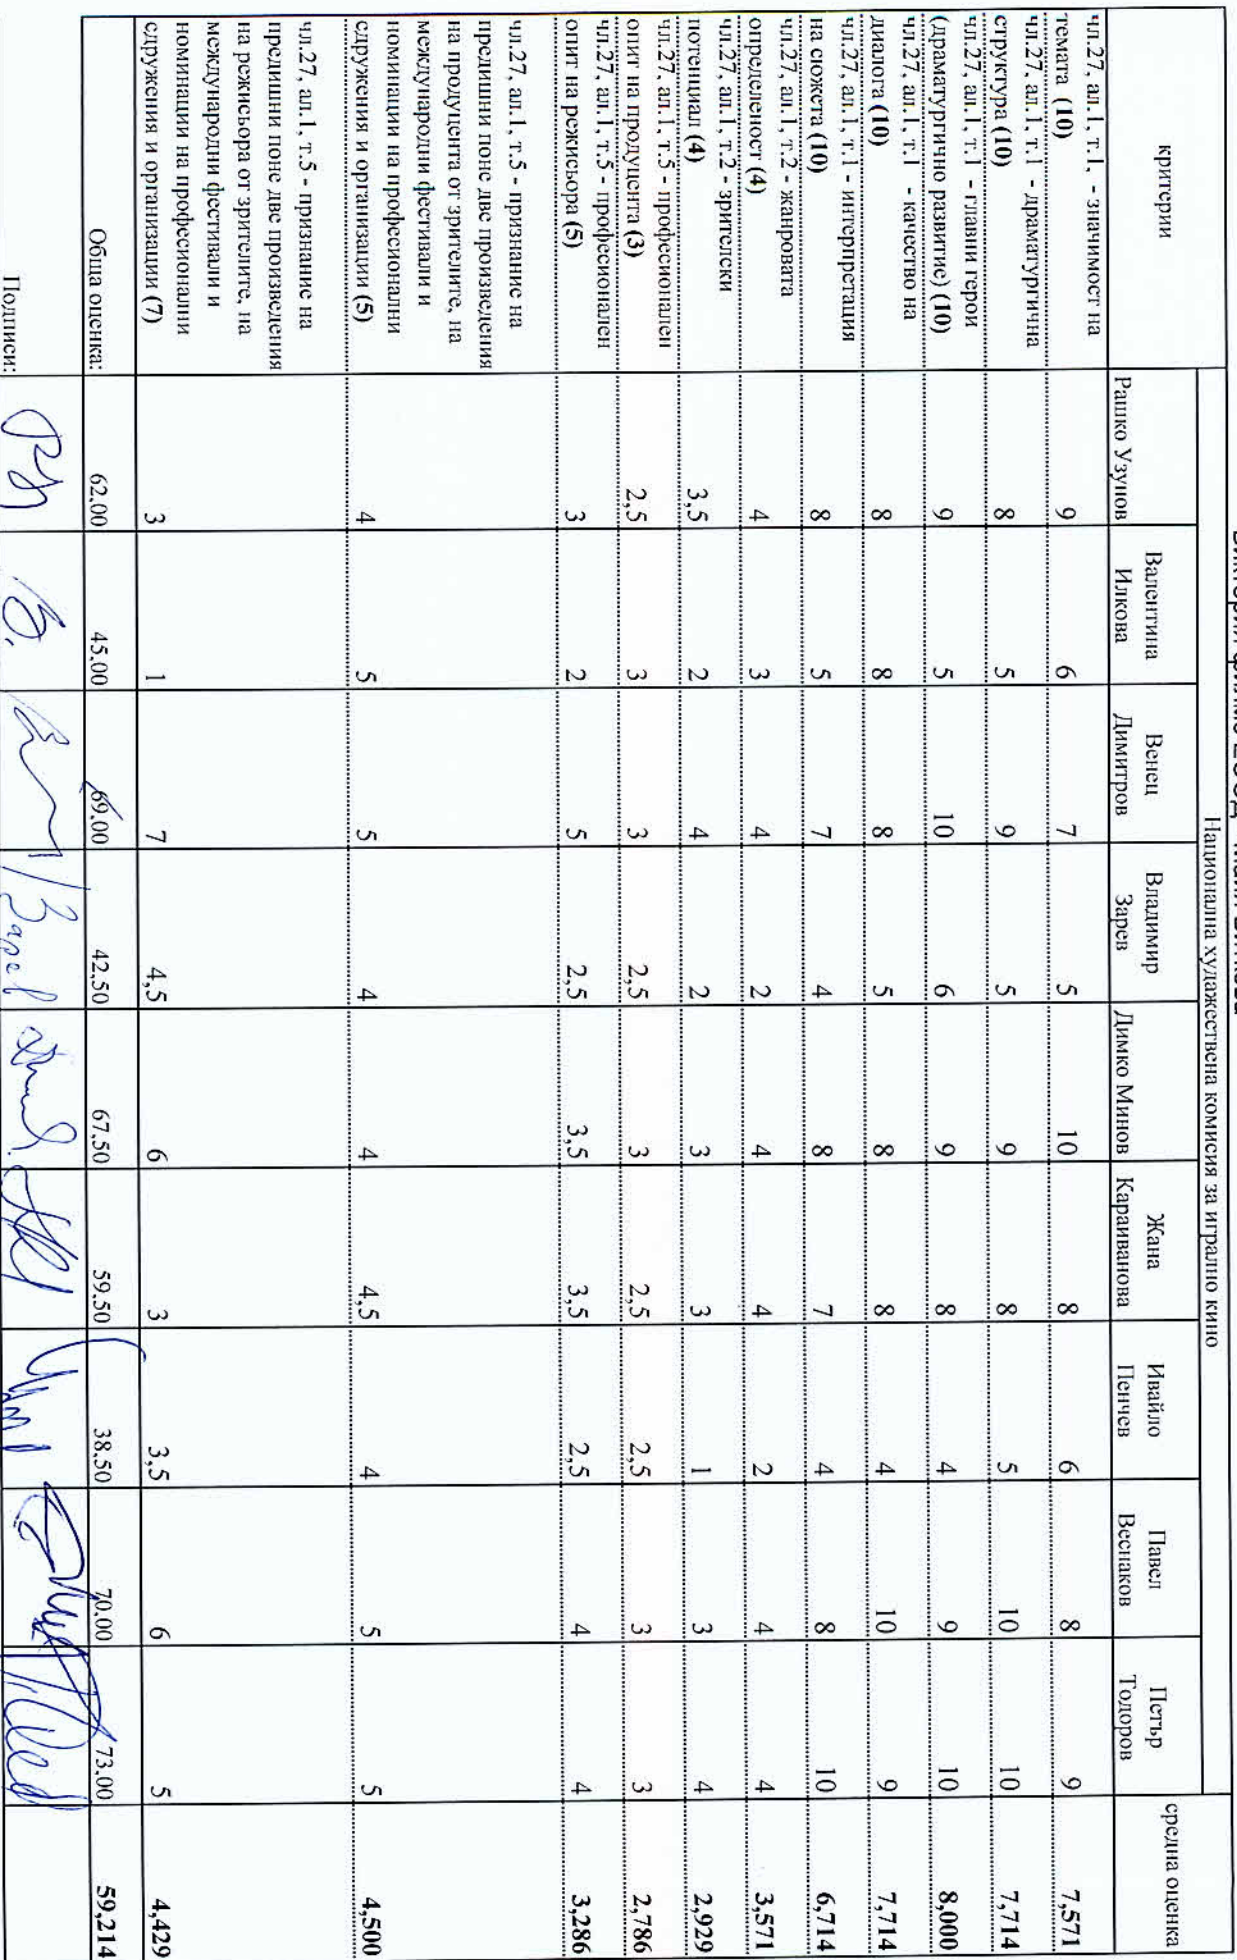 Национална художествена комисия за игрално кино
критерии Рашко Узунов Валентина Илкова Венец Димитров Владимир Зарев Димко Минов Жана Караиванова Ивайло Пенчев Павел Веснаков Петър Тодоров средна оценка
чл.27, ал.1, т.1, - значимост на
темата (10) 9 6 7 5 10 8 6 8 9 7,571
чл.27, ал.1, т.1 - драматургична
структура (10) 8 5 9 5 9 8 5 10 10 7,714
чл.27, ал.1, т.1 - главни герои
(драматургично развитие) (10) 9 5 10 6 9 8 4 9 10 8,000
чл.27, ал.1, т.1 - качество на
диалога (10) 8 8 8 5 8 8 4 10 9 7,714
чл.27, ал.1, т.1 - интерпретация
на сюжета (10) 8 5 7 4 8 7 4 8 10 6,714
чл.27, ал.1, т.2 - жанровата
определеност (4) 4 3 4 2 4 4 2 4 4 3,571
чл.27, ал.1, т.2 - зрителски
потенциал (4) 3,5 2 4 2 3 3 1 3 4 2,929
чл.27, ал.1, т.5 - професионален
опит на продуцента (3) 2,5 3 3 2,5 3 2,5 2,5 3 3 2,786
чл.27, ал.1, т.5 - професионален
опит на режисьора (5) 3 2 5 2,5 3,5 3,5 2,5 4 4 3,286
чл.27, ал.1, т.5 - признание на
предишни поне две произведения
на продуцента от зрителите, на
международни фестивали и
номинации на професионални
сдружения и организации (5) 4 5 5 4 4 4,5 4 5 5 4,500
чл.27, ал.1, т.5 - признание на
предишни поне две произведения
на режисьора от зрителите, на
международни фестивали и
номинации на професионални
сдружения и организации (7) 3 1 7 4,5 6 3 3,5 6 5 4,429
Обща оценка: 62.00 45.00 69.00 42.50 67.50 59.50 38.50 70.00 73.00 59,214
Подписи: Зарев